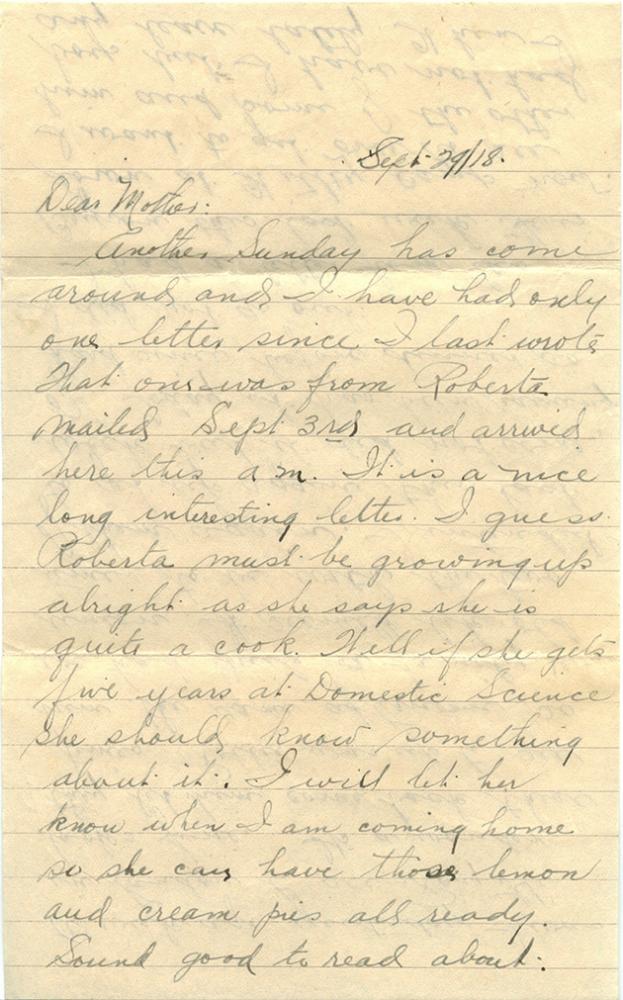 Sept. 29/18.
Dear Mother:
Another Sunday has come
around and I have had only
one letter since I last wrote
That one was from Roberta
mailed Sept 3rd and arrived
here this a m. It is a nice
long interesting letter. I guess
Roberta must be growing up
alright as she says she is
quite a cook. Well if she gets
five years at Domestic Science
she should know something
about it. I will let her
know when I am coming home
so she can have those lemon
and cream pies all ready.
Sound good to read about.